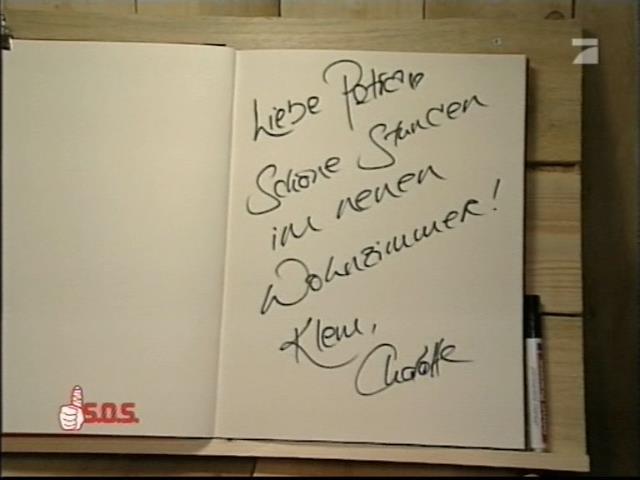 Liebe Patricia
Schöne Stunden
im neuen
Wohnzimmer!
Charlotte
7
S.O.S.